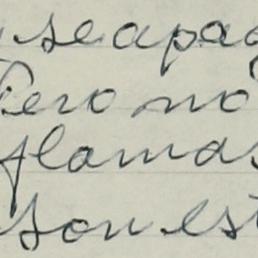 se apag
Pero no
flamas
son est